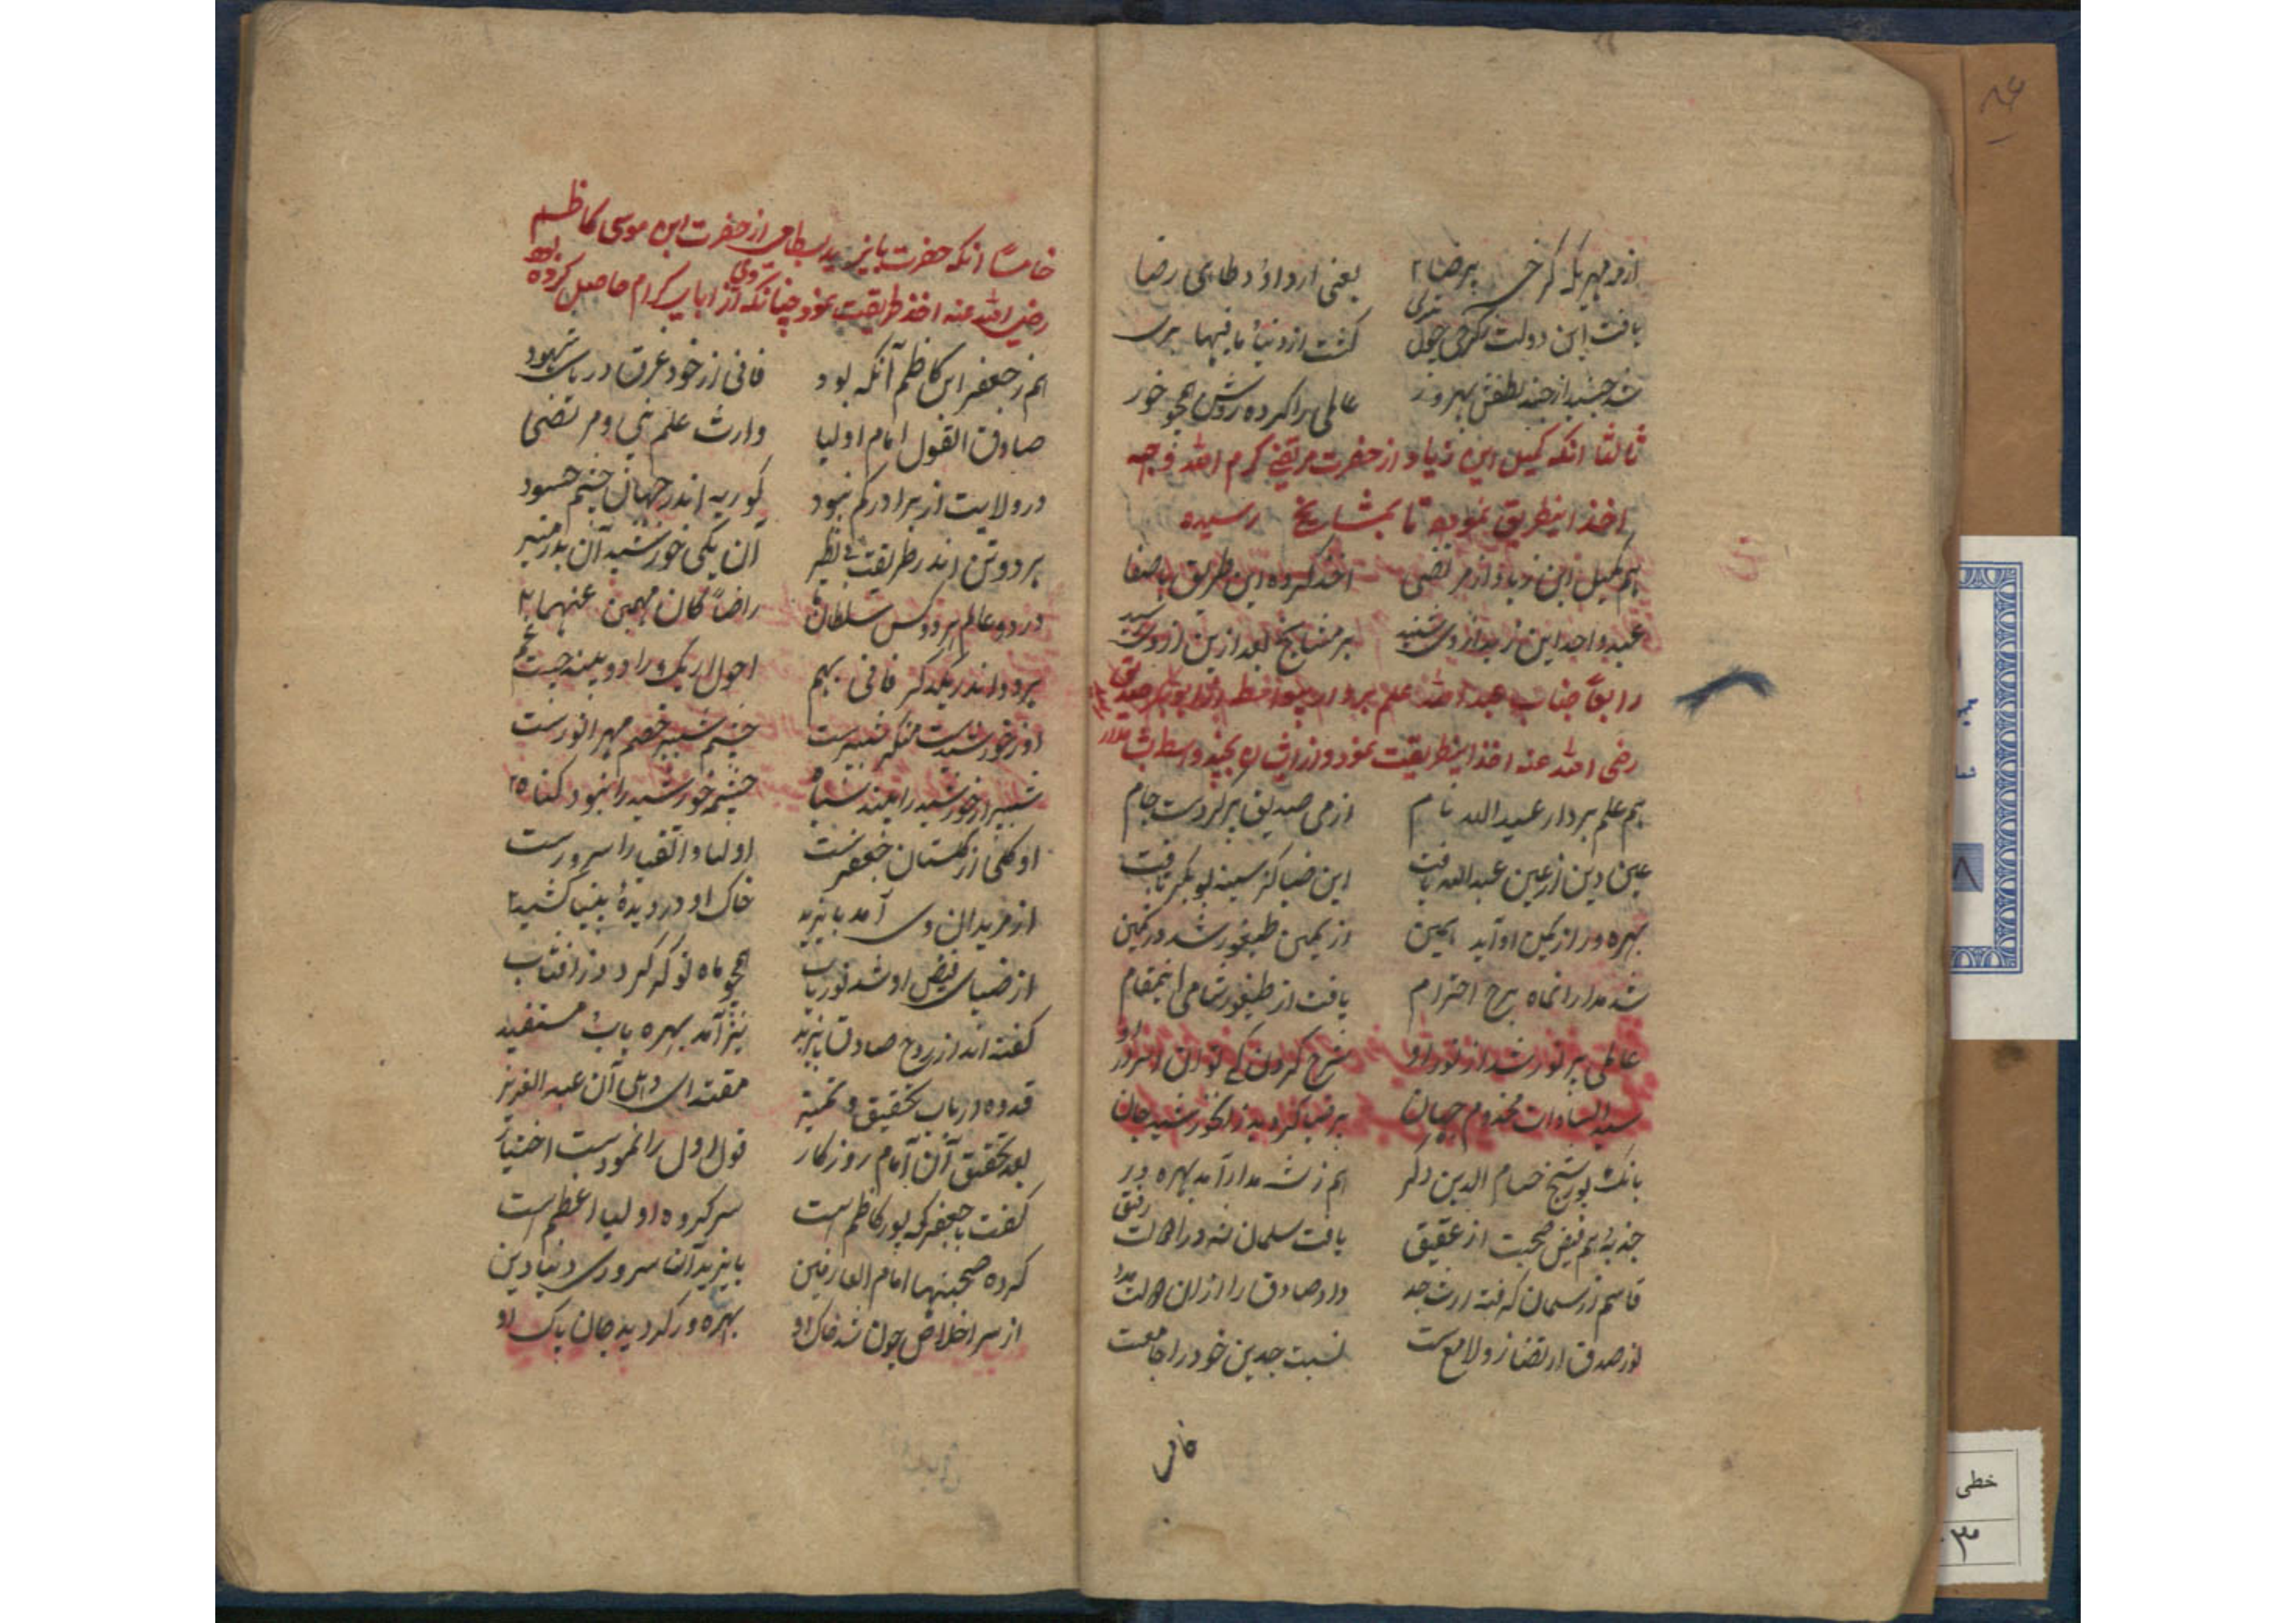 از و مهر یک کرخی پیر ضیا یعنی از داؤد طایی رضا
یافت این دولت کرخی چول گشت از دنیا مافیها بری
شد جنید از لطفش بهره ور عالمی را کرده روشن همچو خور
ثالثا انکه کمیل ابن زیاد از حضرت مرتضی کرم الله وجهه
اخذ اینطریق نموده تا بمشایخ رسیده
هم کمیل ابن زیاد از مرتضی اخذ کرده این طریق باصفا
عبد واحد ابن زید از وی شنید بر مشایخ بعد ازین از وی رسید
رابعاً جناب عبد الله علم بردار ابوبکر صدیق
رضی الله عنه اخذ اینطریقت نمود و از ایشان بچند واسطه
هم علم بردار عبد الله نام از می صدیق پر کردست جام
عین دین از عین عبد الله یافت این ضیا کز سینه بوبکر تافت
بهره ور از یمن او آمد یمین از یمین طیفور شد در کمین
شد مدار انماه برج احترام یافت از طیفور شامی اینمقام
عالمی پر نور شد از نور او شرح کردن کے توان اسرار او
سید السادات مخدوم جهان پر ضیا گردید زانخورشید جان
بانک پور شیخ حسام الدین دگر هم ز شه مدار آمد بهره ور
جذبه هم فیض صحبت از عقیق یافت سلمان رفیق
قاسم از سلمان گرفته ارث جد داد صادق را از آن مدد
نور صدق ارتضا زو لامع ست نسبت جدین خود را جامعست
خامساً انکه حضرت بایزید بسطامی از حضرت ابن موسی کاظم
رضی الله عنه اخذ طریقت نمود چنانکه وی از ابای کرام حاصل کرده بود
هم ز جعفر ابن کاظم آنکه بود فانی از خود غرق دریای شهود
صادق القول امام اولیا وارث علم نبی و مرتضی
در ولایت از برادر کم نبود کور به اندر جهان چشم حسود
هر دو تن اندر طریقت بی نظیر آن یکی خورشید آن بدر منیر
در دو عالم هر دو کس سلطان راضیاً کان مهیمن عنهما
هر دو اند در یکدگر فانی بهم احول ار یک را دو بیند چیست غم
او ز خورشیدست منکر شپرست چشم شپر خصم مهر انورست
شپر ار خورشید را بیند سیاه چشم خورشید را نبود گناه
او گلی از گلستان جعفرست اولیا و اتقیا را سرورست
از مریدان وی آمد بایزید خاک او در دیدۀ بینا کشید
از ضیای فیض او شد نور یاب همچو ماه نو که گردد ز آفتاب
گفته اند از روح صادق بایزید نیز آمد بهره یاب مستفید
قدوه ارباب تحقیق و تمییز مقتدای دهلی آن عبد العزیز
بعد تحقیق آن امام روزگار قول اول را نمودست اختیار
گفت با جعفر که پور کاظم است سرگروه اولیا اعظم است
کرده صحبتها امام العارفین بایزید آن سرور دنیا و دین
از سر اخلاص چون شد خاک او بهره ور گردید جان پاک او
فانی
خطی